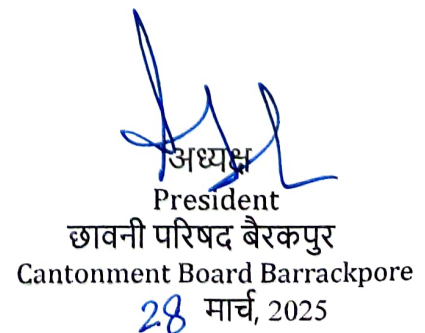 अध्यक्ष
President
छावनी परिषद बैरकपुर
Cantonment Board Barrackpore
28 मार्च, 2025